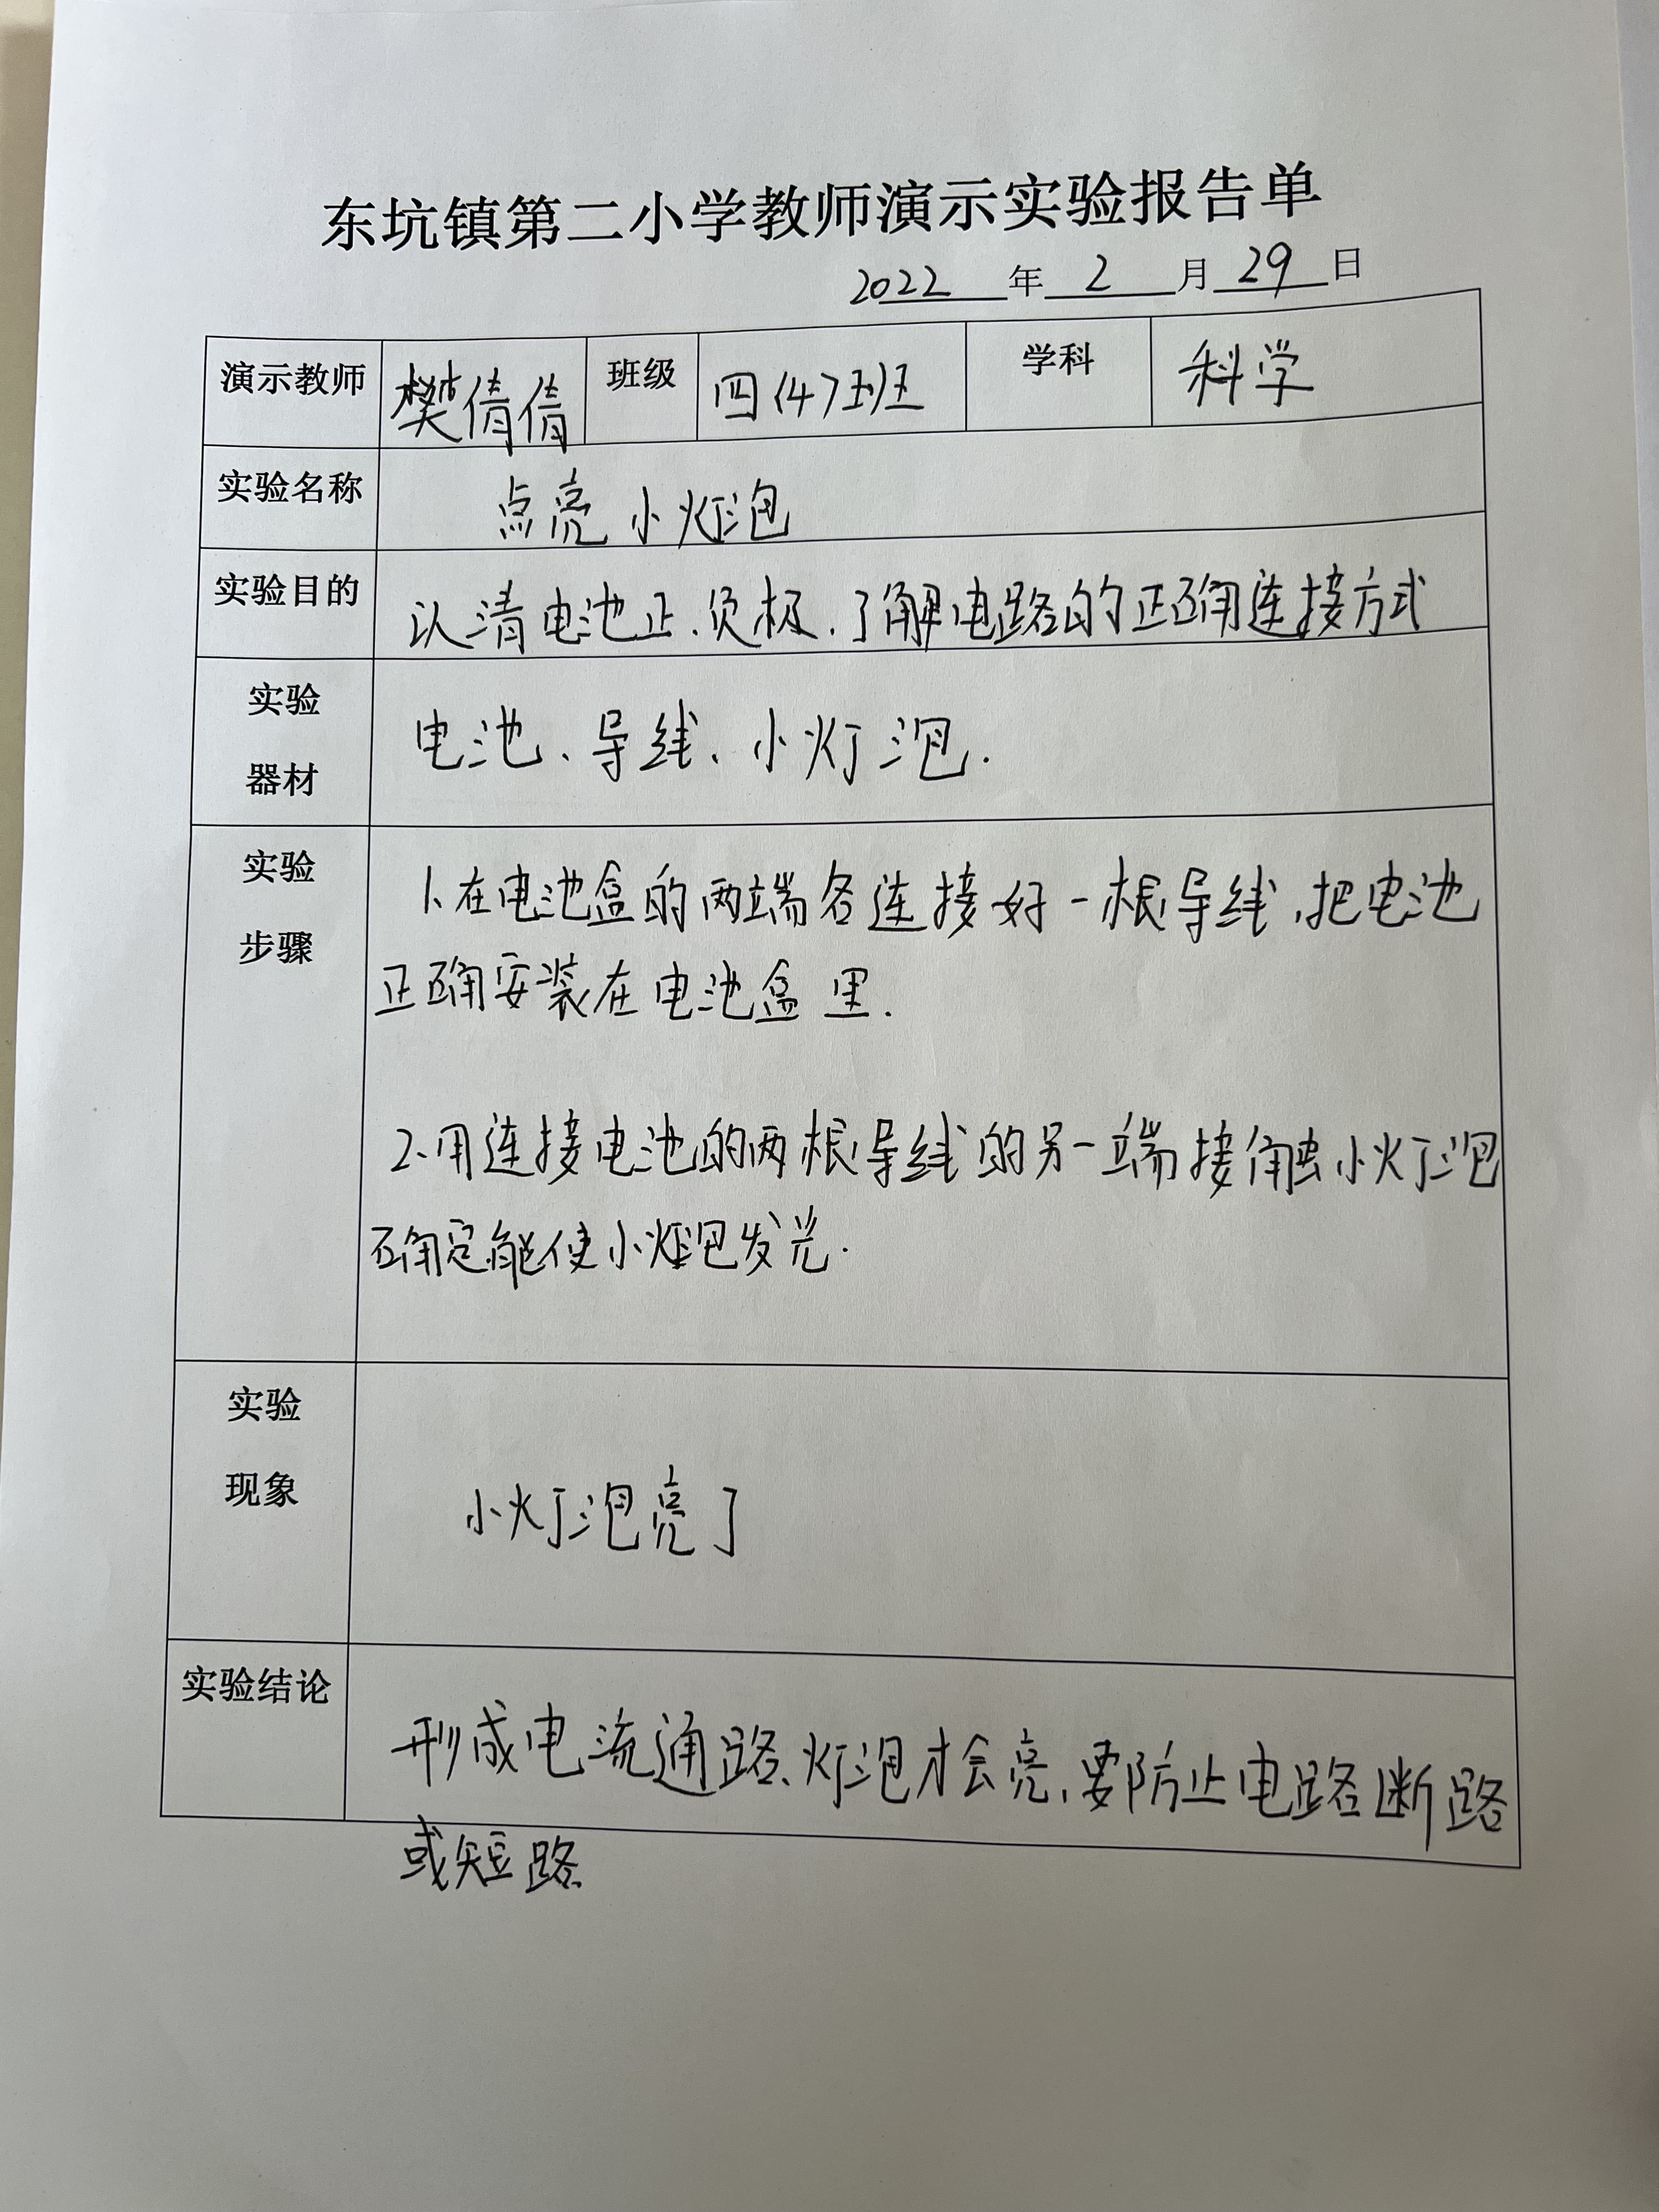 东坑镇第二小学教师演示实验报告单
2022 年 2 月 29 日
演示教师 樊倩倩 班级 四(4)班 学科 科学
实验名称 点亮小灯泡
实验目的 认清电池正、负极、了解电路的正确连接方式
实验
器材
电池、导线、小灯泡.
实验
步骤
1、在电池盒的两端各连接好一根导线,把电池
正确安装在电池盒里.
2、用连接电池的两根导线的另一端接触小灯泡
确定能使小灯泡发光.
实验
现象
小灯泡亮了
实验结论
形成电流通路、灯泡才会亮、要防止电路断路
或短路